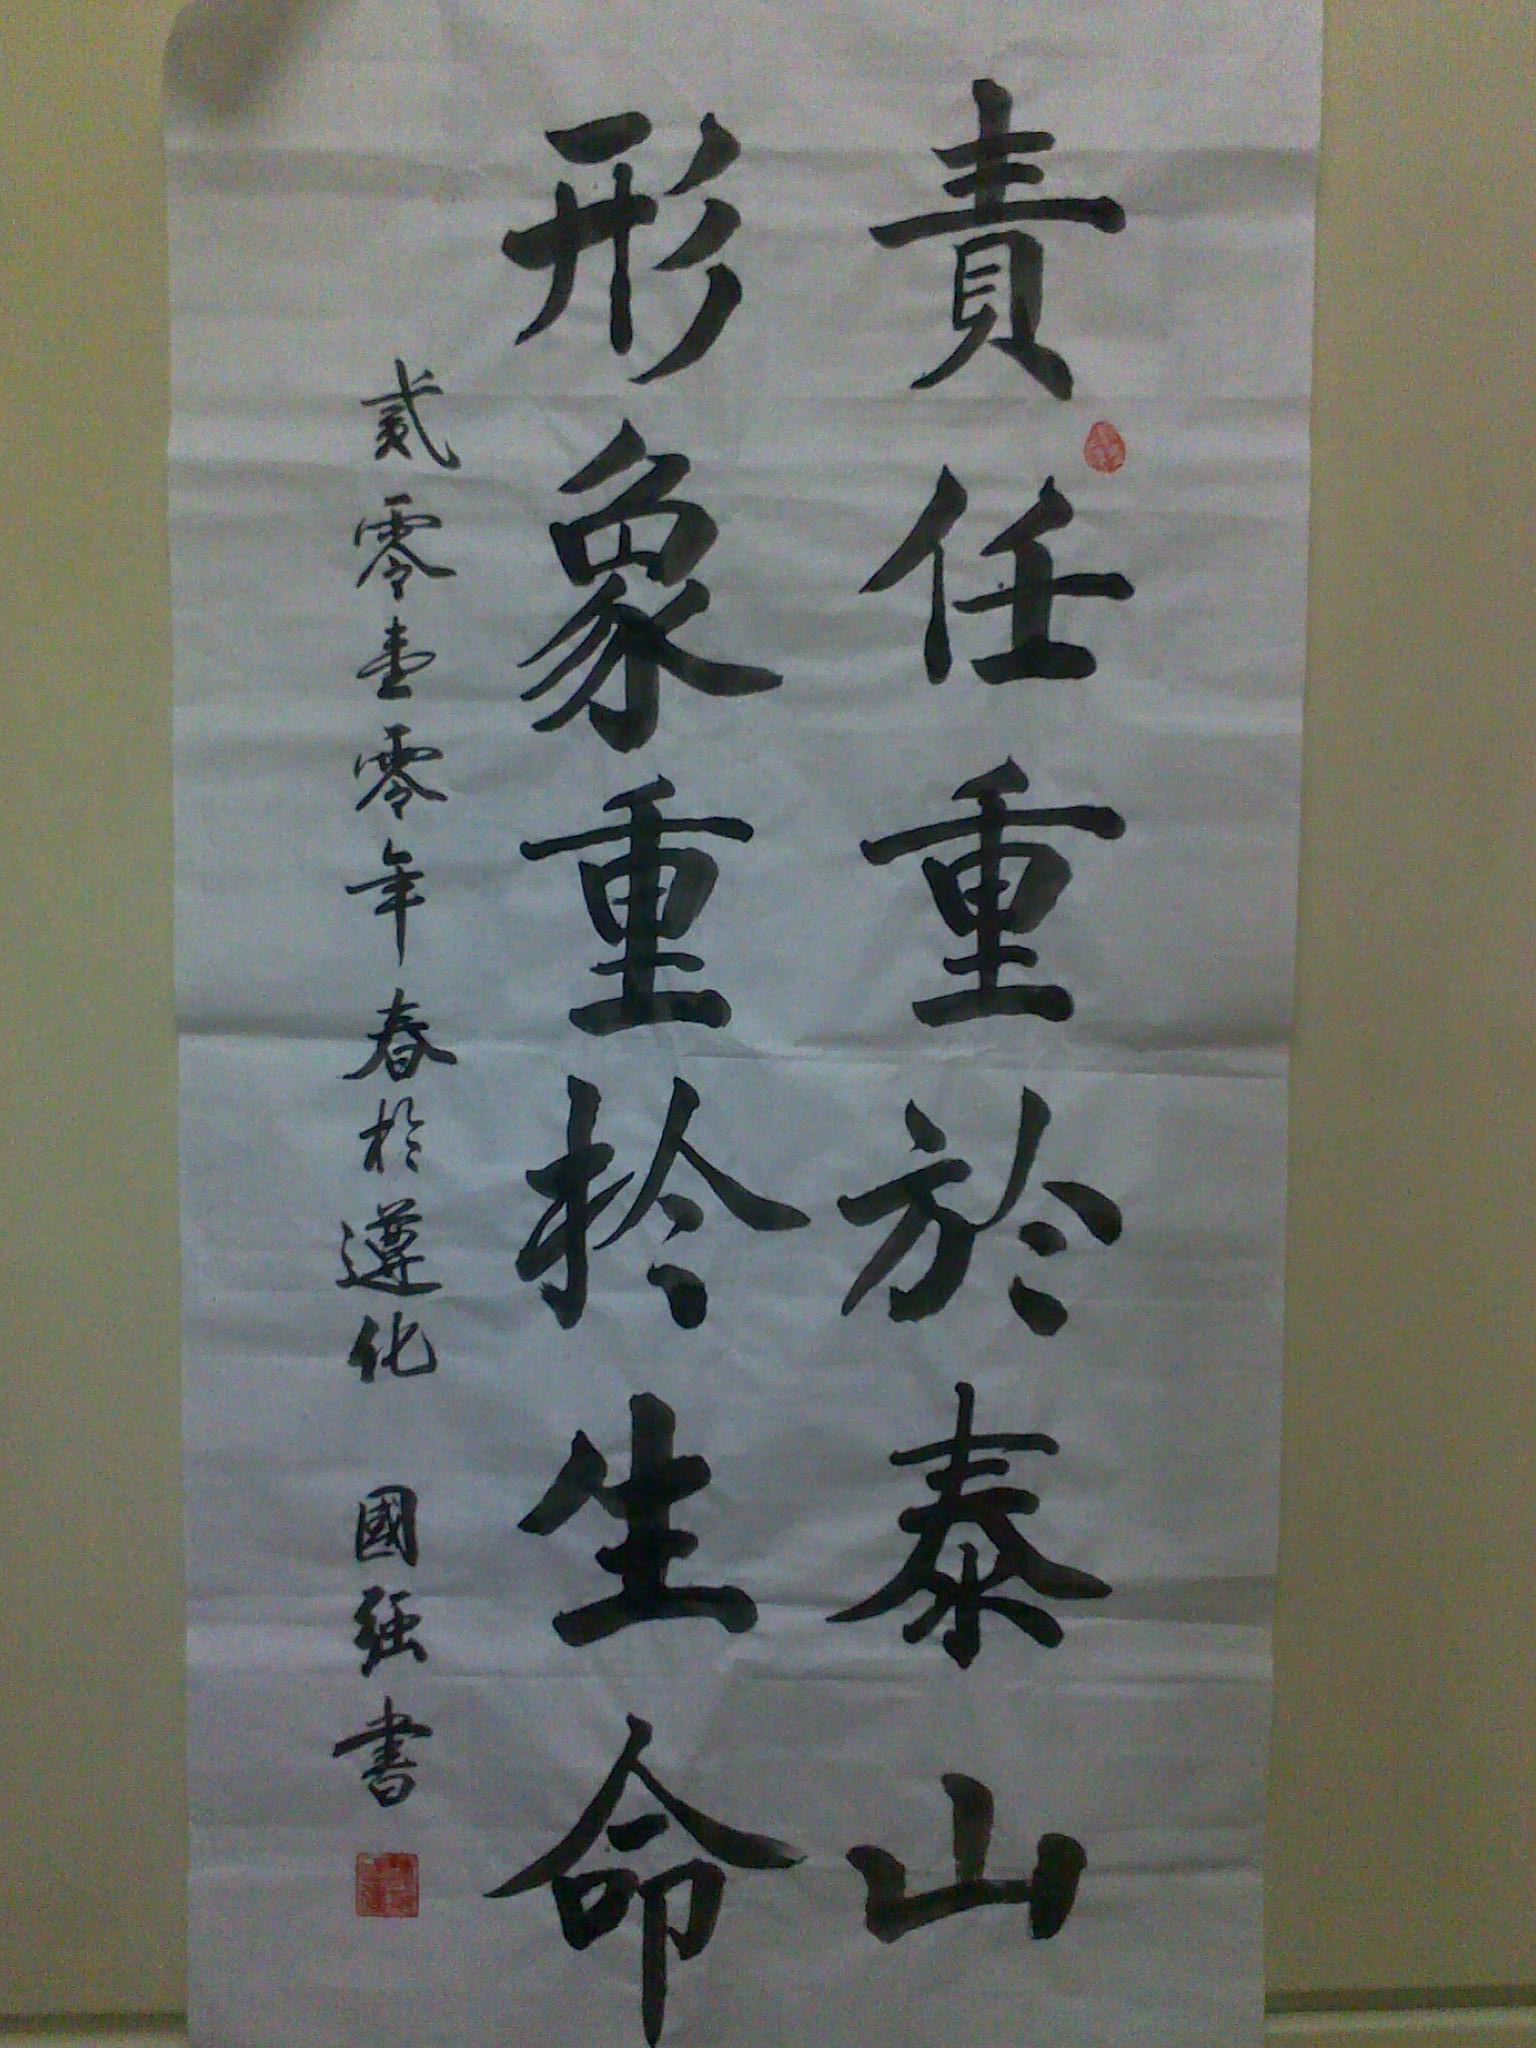 責任重於泰山
形象重於生命
貳零壹零年春於遵化 國強書